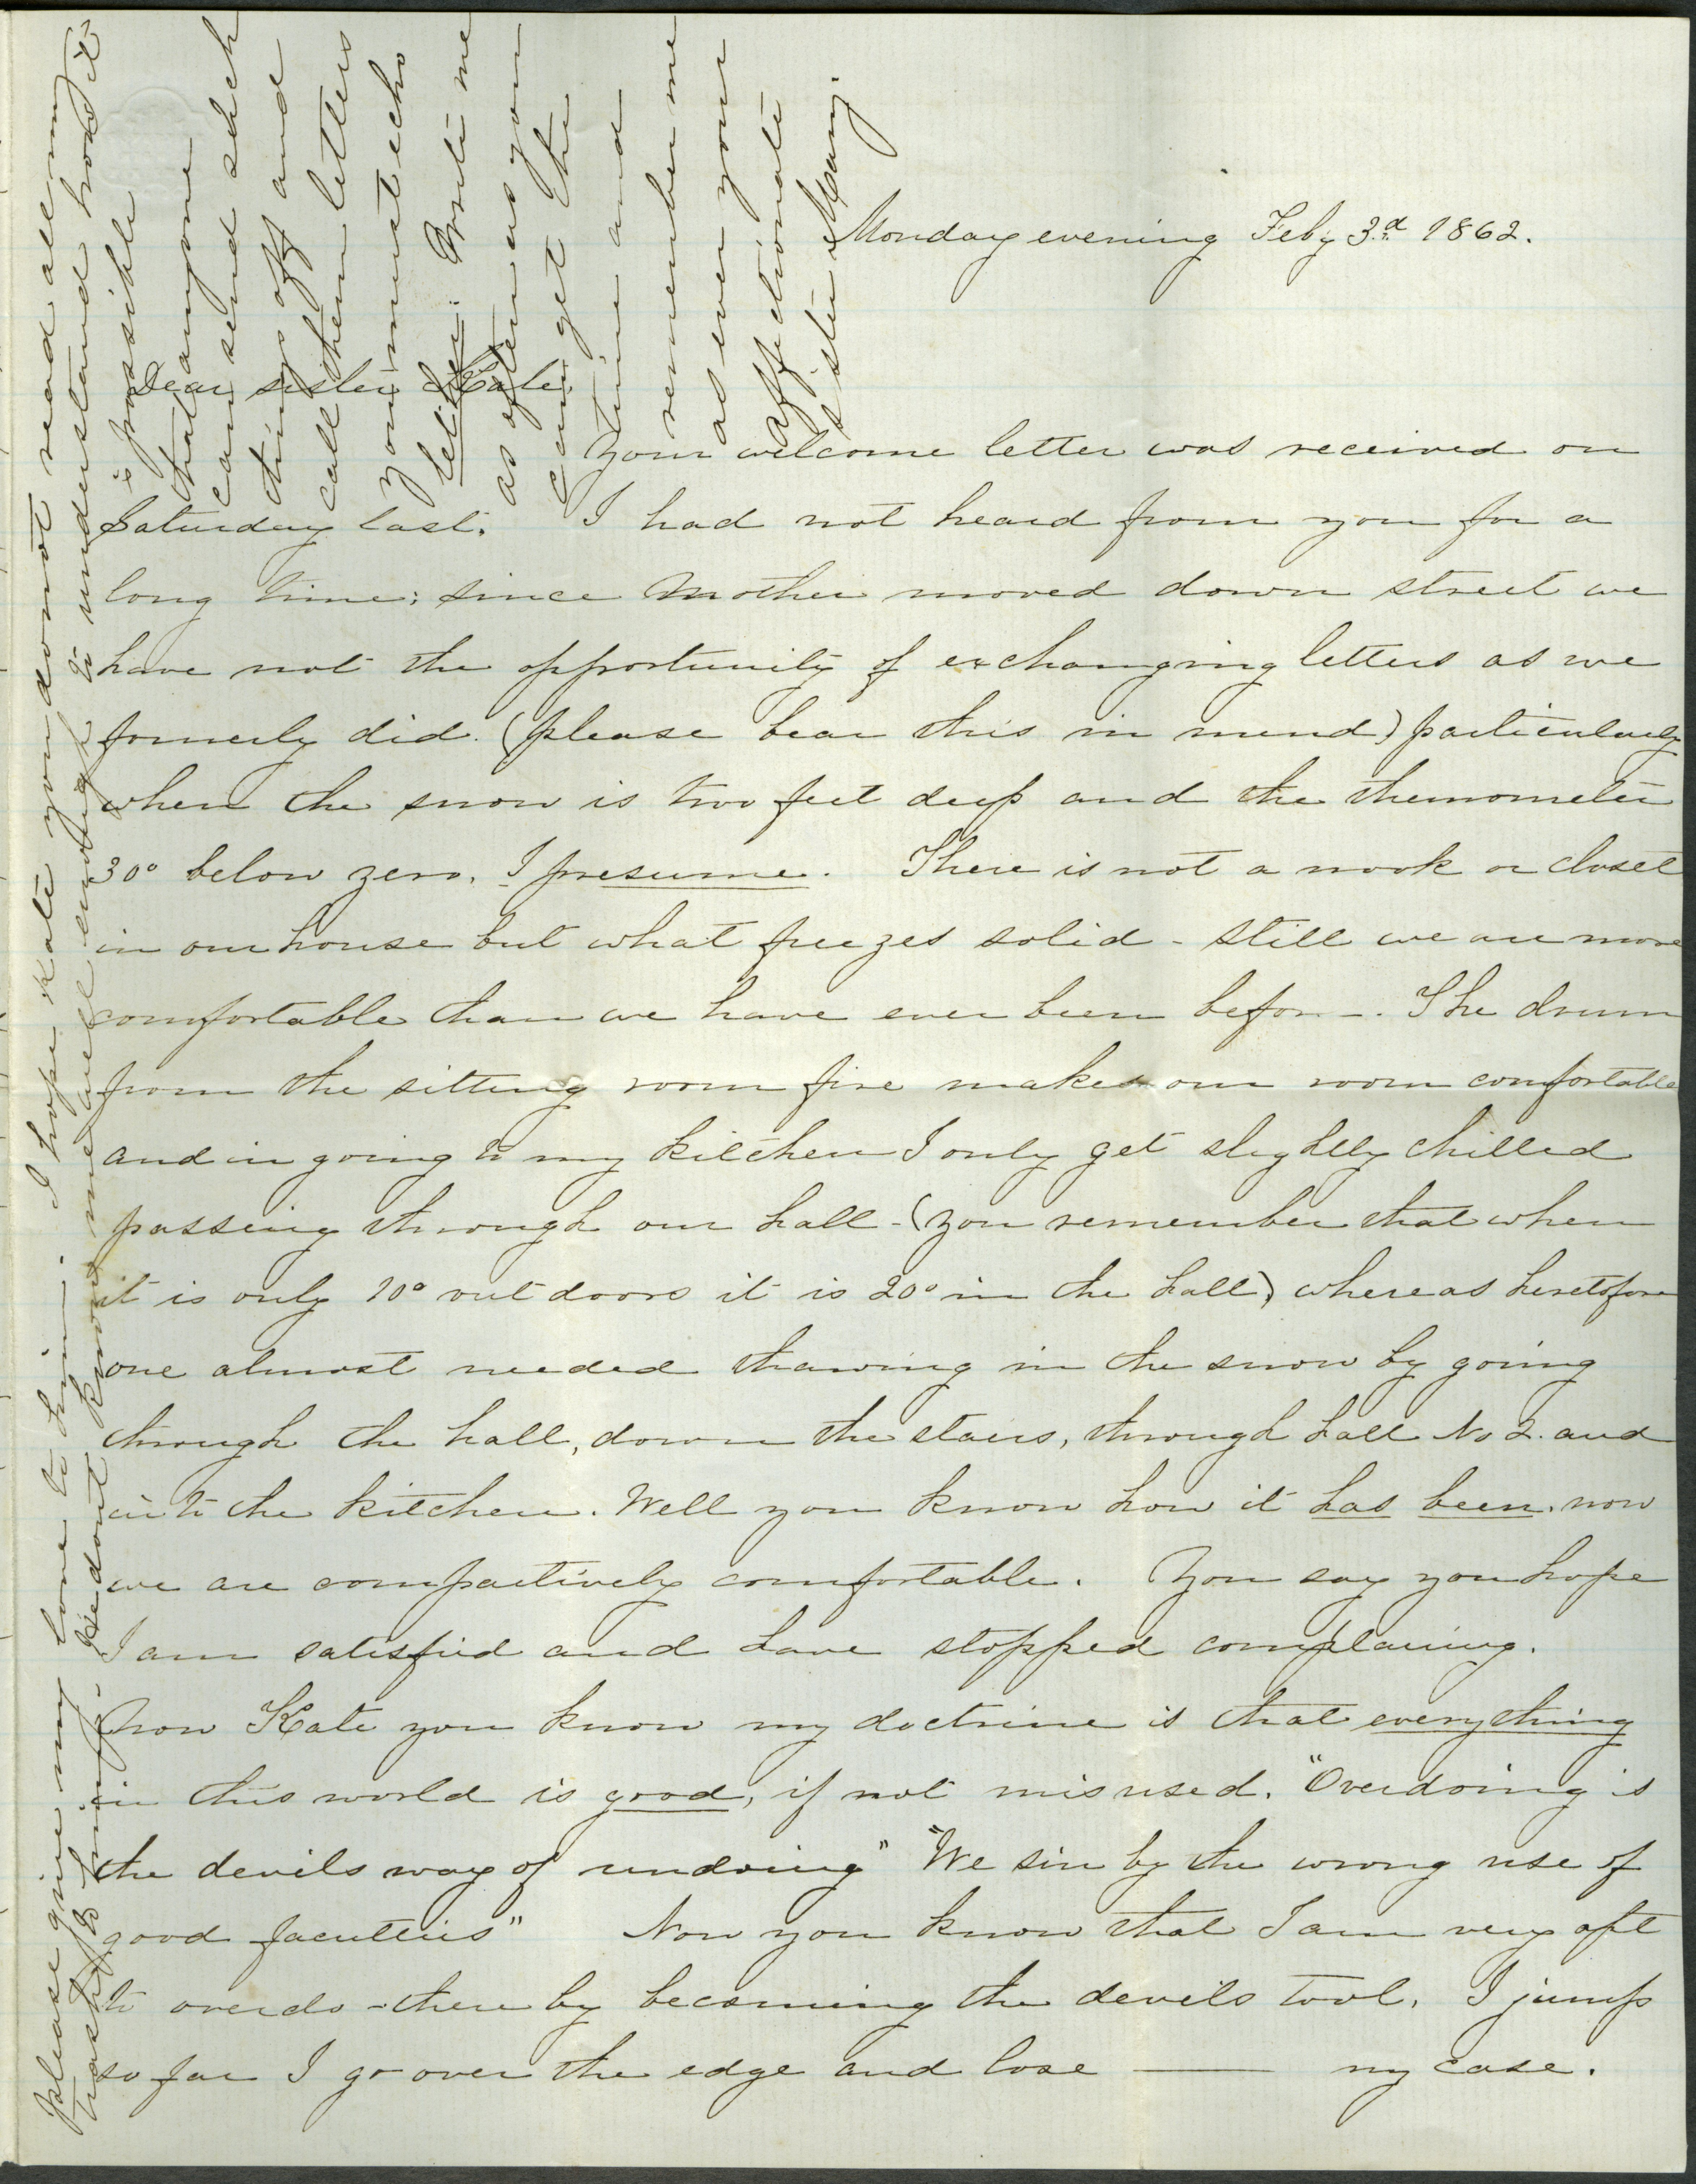 Monday evening Feby 3.d 1862.
Dear sister Kate.
Your welcome letter was received on
Saturday last. I had not heard from you for a
long time; since Mother moved down street we
have not the opportunity of exchanging letters as we
formerly did. (please bear this in mind) particularly
when the snow is two feet deep and the themometer
30° below zero. I presume. There is not a nook or closet
in our house but what freezes solid - still we are more
comfortable than we have ever been before -. The drum
from the sitting room fire makes our room comfortable
and in going to my kitchen I only get slightly chilled
passing through our hall - (you remember that when
it is only 10° out doors it is 20° in the hall) whereas heretofore
one almost needed thawing in the snow by going
through the hall, down the stairs, through hall No 2. and
into the kitchen. Well you know how it has been. now
we are compartively comfortable. You say you hope
I am satisfied and have stopped complaining.
Now Kate you know my doctrine is that everything
in this world is good, if not misused. "Overdoing is
the devils way of undoing" "We sin by the wrong use of
good faculties" Now you know that I am very apt
to overdo - there by becoming the devils tool. I jump
so far I go over the edge and lose —— my case.
please give my love to him -. I hope Kate you do not read all my
trash to him -. He dont know me well enough to understand how it
is possible
that anyone
can send such
things off and
call them letters
you must echo
believe. Write me
as often as you
can get the
time and
remember me
as ever your
affectionate
sister Mary.